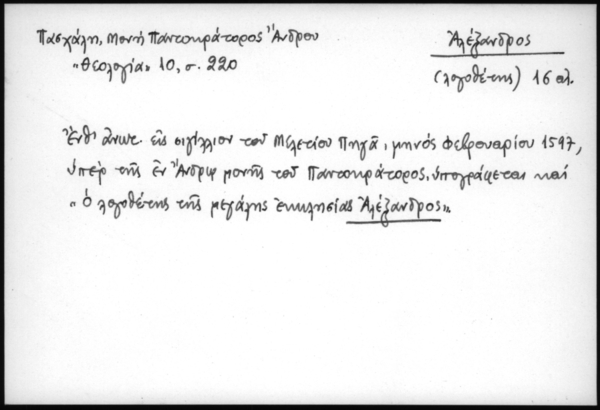 Πασχάλη, Μονή Παντοκράτορος Ἄνδρου
Ἀλέξανδρος
«Θεολογία» 10, σ. 220
(λογοθέτης) 16 αἰ.
Ἔνθ' ἄνωτ. εἰς σιγίλλιον τοῦ Μελετίου Πηγᾶ, μηνός Φεβρουαρίου 1597,
ὑπέρ τῆς ἐν Ἄνδρῳ μονῆς τοῦ Παντοκράτορος, ὑπογράφεται καί
«Ὁ λογοθέτης τῆς μεγάλης ἐκκλησίας Ἀλέξανδρος».